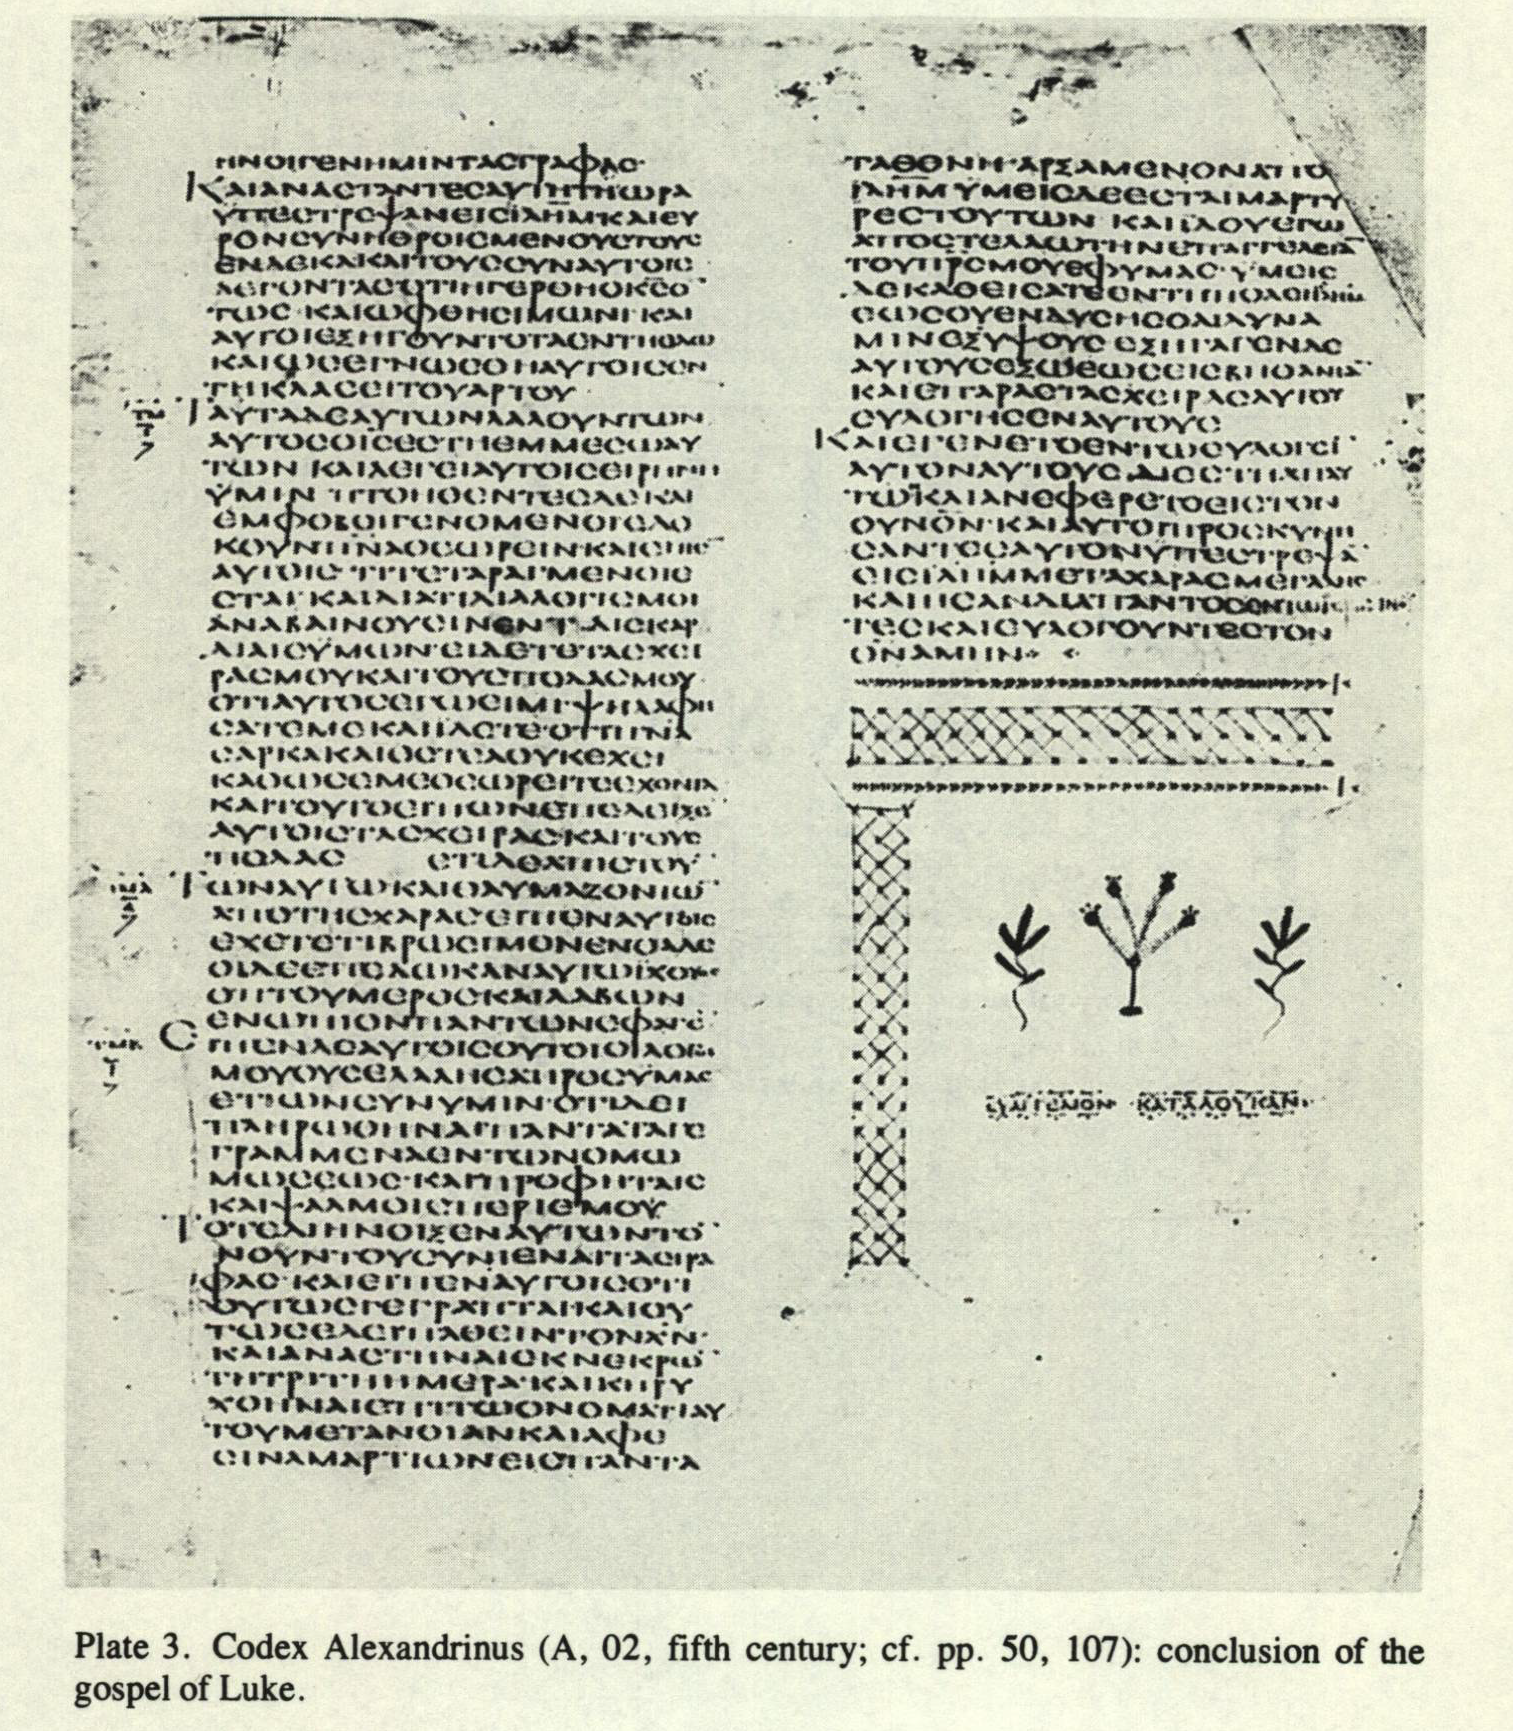 ΗΝΟΙΓΕΝΗΜΙΝΤΑCΓΡΑΦΑC·
ΚΑΙΑΝΑCΤΑΝΤΕCΑΥΤΗΤΗΩΡΑ
ΥΠΕCΤΡΕΨΑΝΕΙCΙΛΗΜΚΑΙΕΥ
ΡΟΝCΥΝΗΘΡΟΙCΜΕΝΟΥCΤΟΥC
ΕΝΔΕΚΑΚΑΙΤΟΥCCΥΝΑΥΤΟΙC
ΛΕΓΟΝΤΑCΟΤΙΗΓΕΡΘΗΟΚCΟ
ΤΩC·ΚΑΙΩΦΘΗCΙΜΩΝΙ·ΚΑΙ
ΑΥΤΟΙΕΞΗΓΟΥΝΤΟΤΑΕΝΤΗΟΔΩ
ΚΑΙΩCΕΓΝΩCΘΗΑΥΤΟΙCΕΝ
ΤΗΚΛΑCΕΙΤΟΥΑΡΤΟΥ
ΤΑΥΤΑΔΕΑΥΤΩΝΛΑΛΟΥΝΤΩΝ
ΑΥΤΟCΟΙCΕCΤΗΕΜΜΕCΩΑΥ
ΤΩΝ ΚΑΙΛΕΓΕΙΑΥΤΟΙCΕΙΡΗΝΗ
ΥΜΙΝ ΠΤΟΗΘΕΝΤΕCΔΕΚΑΙ
ΕΜΦΟΒΟΙΓΕΝΟΜΕΝΟΙΕΔΟ
ΚΟΥΝΠΝΑΘΕΩΡΕΙΝ·ΚΑΙΕΙΠΕ
ΑΥΤΟΙC ΤΙΤΕΤΑΡΑΓΜΕΝΟΙΕ
CΤΑΙ·ΚΑΙΔΙΑΤΙΔΙΑΛΟΓΙCΜΟΙ
ΑΝΑΒΑΙΝΟΥCΙΝΕΝΤΑΙCΚΑΡ
ΔΙΑΙCΥΜΩΝ·ΕΙΔΕΤΕΤΑCΧΕΙ
ΡΑCΜΟΥΚΑΙΤΟΥCΠΟΔΑCΜΟΥ
ΟΤΙΑΥΤΟCΕΓΩΕΙΜΙ·ΨΗΛΑΦΗ
CΑΤΕΜΕΚΑΙΙΔΕΤΕ·ΟΤΙΠΝΑ
CΑΡΚΑΚΑΙΟCΤΕΑΟΥΚΕΧΕΙ
ΚΑΘΩCΕΜΕΘΕΩΡΕΙΤΕΕΧΟΝΤΑ
ΚΑΙΤΟΥΤΟΕΙΠΩΝΕΠΕΔΕΙΞΕ
ΑΥΤΟΙCΤΑCΧΕΙΡΑCΚΑΙΤΟΥC
ΠΟΔΑC ΕΤΙΔΕΑΠΙCΤΟΥ
ΤΩΝΑΥΤΩΚΑΙΘΑΥΜΑΖΟΝΤΩ
ΑΠΟΤΗCΧΑΡΑCΕΙΠΕΝΑΥΤΟΙC
ΕΧΕΤΕΤΙΒΡΩCΙΜΟΝΕΝΘΑΔΕ
ΟΙΔΕΕΠΕΔΩΚΑΝΑΥΤΩΙΧΘΥΟC
ΟΠΤΟΥΜΕΡΟCΚΑΙΛΑΒΩΝ
ΕΝΩΠΙΟΝΠΑΝΤΩΝΕΦΑΓΕ
ΕΙΠΕΝΔΕΑΥΤΟΙCΟΥΤΟΙΟΙΛΟΓΟΙ
ΜΟΥΟΥCΕΛΑΛΗCΑΠΡΟCΥΜΑC
ΕΤΙΩΝCΥΝΥΜΙΝ·ΟΤΙΔΕΙ
ΠΛΗΡΩΘΗΝΑΙΠΑΝΤΑΤΑΓΕ
ΓΡΑΜΜΕΝΑΕΝΤΩΝΟΜΩ
ΜΩCΕΩC·ΚΑΙΠΡΟΦΗΤΑΙC
ΚΑΙΨΑΛΜΟΙCΠΕΡΙΕΜΟΥ
ΤΟΤΕΔΙΗΝΟΙΞΕΝΑΥΤΩΝΤΟ
ΝΟΥΝΤΟΥCΥΝΙΕΝΑΙΤΑCΓΡΑ
ΦΑC·ΚΑΙΕΙΠΕΝΑΥΤΟΙCΟΤΙ
ΟΥΤΩCΓΕΓΡΑΠΤΑΙΚΑΙΟΥ
ΤΩCΕΔΕΙΠΑΘΕΙΝΤΟΝΧΝ·
ΚΑΙΑΝΑCΤΗΝΑΙΕΚΝΕΚΡΩ
ΤΗΤΡΙΤΗΗΜΕΡΑ·ΚΑΙΚΗΡΥ
ΧΘΗΝΑΙΕΠΙΤΩΟΝΟΜΑΤΙΑΥ
ΤΟΥΜΕΤΑΝΟΙΑΝΚΑΙΑΦΕ
CΙΝΑΜΑΡΤΙΩΝΕΙCΠΑΝΤΑ
ΤΑΕΘΝΗ·ΑΡΞΑΜΕΝΟΝΑΠΟ
ΙΛΗΜ ΥΜΕΙCΔΕΕCΤΑΙΜΑΡΤΥ
ΡΕCΤΟΥΤΩΝ ΚΑΙΙΔΟΥΕΓΩ
ΑΠΟCΤΕΛΛΩΤΗΝΕΠΑΓΓΕΛΕΙΑ
ΤΟΥΠΡCΜΟΥΕΦΥΜΑC·ΥΜΕΙC
ΔΕΚΑΘΕΙCΑΤΕΕΝΤΗΠΟΛΕΙ
ΕΩCΟΥΕΝΔΥCΗCΘΑΙΔΥΝΑ
ΜΙΝΕΞΥΨΟΥC ΕΞΗΓΑΓΕΝΔΕ
ΑΥΤΟΥCΕΞΩΕΩCΕΙCΒΗΘΑΝΙΑ
ΚΑΙΕΠΑΡΑCΤΑCΧΕΙΡΑCΑΥΤΟΥ
ΕΥΛΟΓΗCΕΝΑΥΤΟΥC
ΚΑΙΕΓΕΝΕΤΟΕΝΤΩΕΥΛΟΓΕΙ
ΑΥΤΟΝΑΥΤΟΥC ΔΙΕCΤΗΑΠΑΥ
ΤΩ·ΚΑΙΑΝΕΦΕΡΕΤΟΕΙCΤΟΝ
ΟΥΝΟΝ·ΚΑΙΑΥΤΟΙΠΡΟCΚΥΝΗ
CΑΝΤΕCΑΥΤΟΝΥΠΕCΤΡΕΨΑ
ΕΙCΙΛΗΜΜΕΤΑΧΑΡΑCΜΕΓΑΛΗC
ΚΑΙΗCΑΝΔΙΑΠΑΝΤΟC
ΤΕCΚΑΙΕΥΛΟΓΟΥΝΤΕCΤΟΝ
ΘΝΑΜΗΝ
ΕΥΑΓΓΕΛΙΟΝ ΚΑΤΑΛΟΥΚΑΝ
Plate 3. Codex Alexandrinus (A, 02, fifth century; cf. pp. 50, 107): conclusion of the
gospel of Luke.